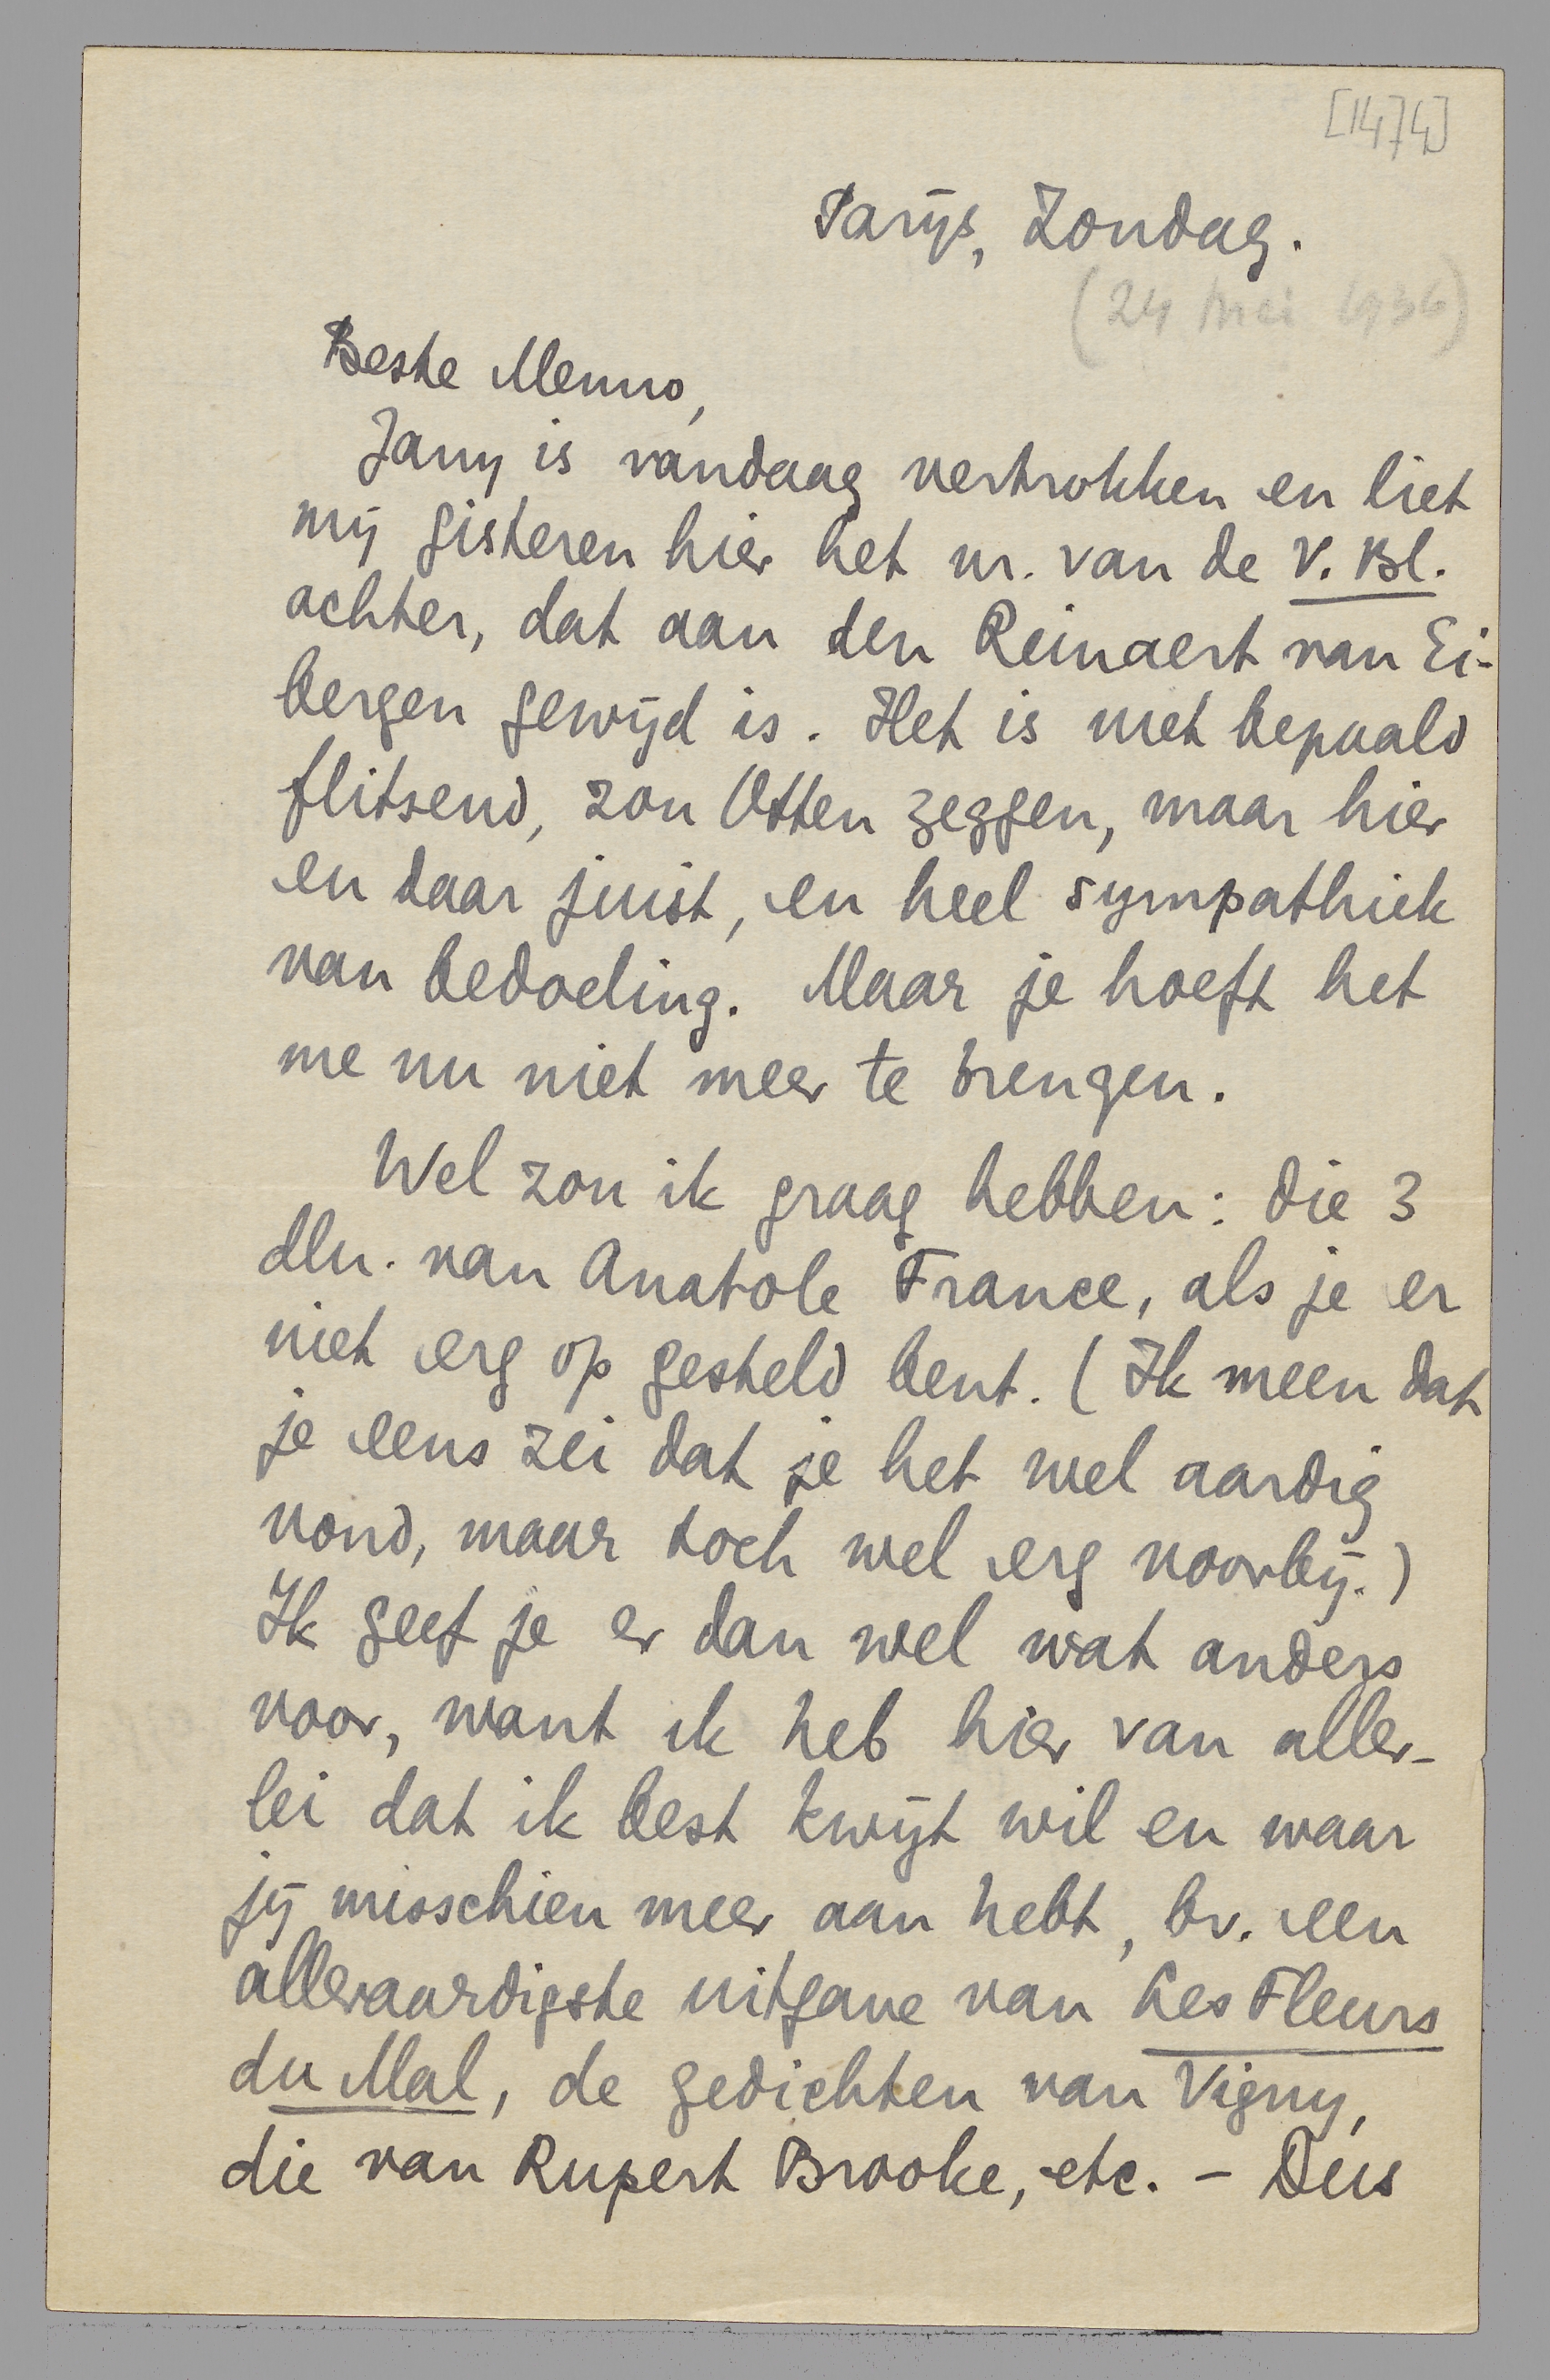 [1474]
Parijs, Zondag.
(24 Mei 1936)
Beste Menno,
Jany is vandaag vertrokken en liet
mij gisteren hier het nr. van de V. Bl.
achter, dat aan den Reinaert van Ei-
bergen gewijd is. Het is niet bepaald
flitsend, zou Otten zeggen, maar hier
en daar juist, en heel sympathiek
van bedoeling. Maar je hoeft het
me nu niet meer te brengen.
Wel zou ik graag hebben: die 3
dln. van Anatole France, als je er
niet erg op gesteld bent. (Ik meen dat
je eens zei dat je het wel aardig
vond, maar toch wel erg voorbij.)
Ik geef je er dan wel wat anders
voor, want ik heb hier van aller-
lei dat ik best kwijt wil en waar
jij misschien meer aan hebt, bv. een
alleraardigste uitgave van Les Fleurs
du Mal, de gedichten van Vigny,
die van Rupert Brooke, etc. – Dus